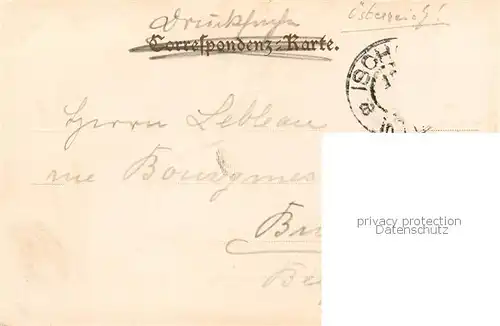 Drucksache
Österreich!
Correspondenz-Karte.
ISCH
Herrn Lebleau
rue Bourgmes
Bru
Be
privacy protection
Datenschutz